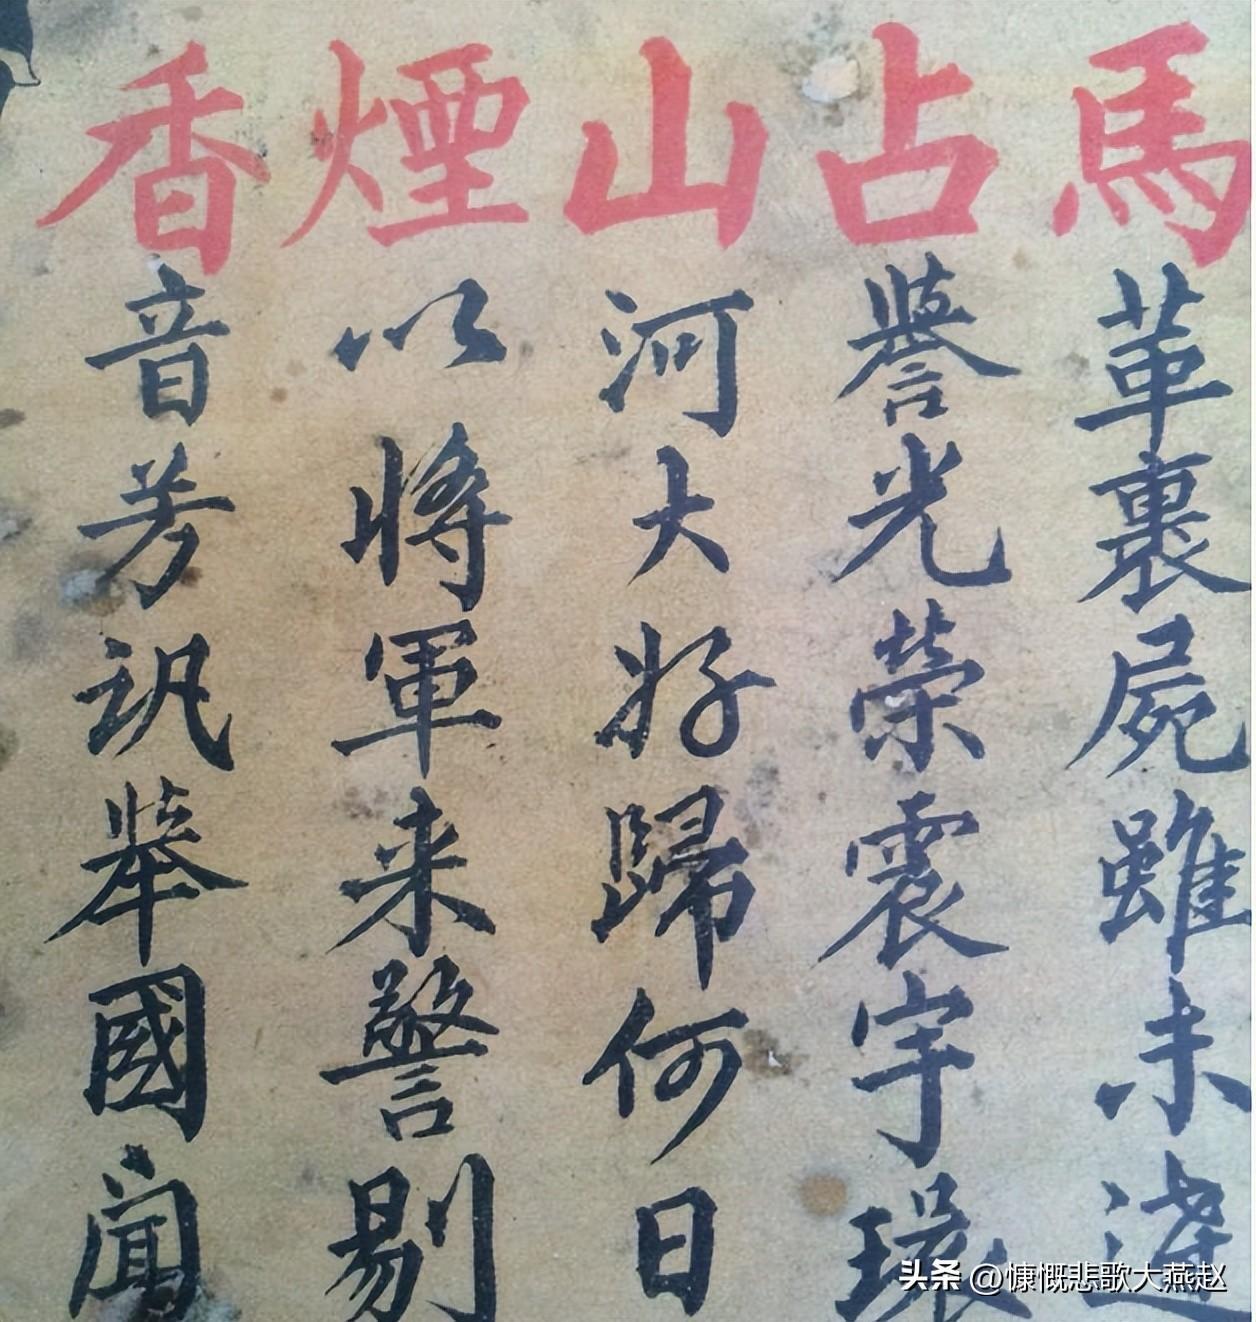 馬占山煙香
革裹屍雖未達
譽光榮震宇環
河大好歸何日
以將軍来警剔
音芳訊舉國聞
头条 @慷慨悲歌大燕赵